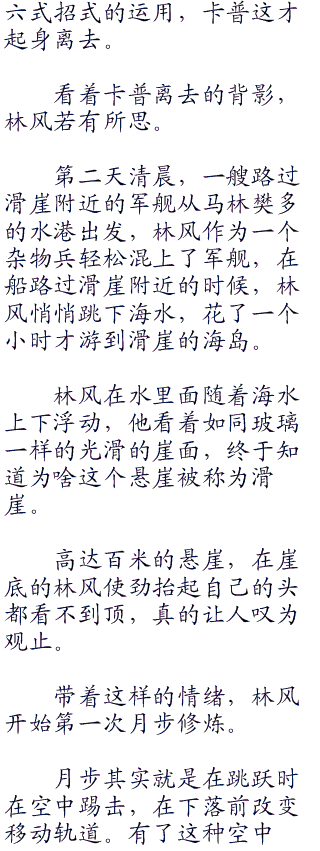 六式招式的运用，卡普这才
起身离去。
看着卡普离去的背影，
林风若有所思。
第二天清晨，一艘路过
滑崖附近的军舰从马林樊多
的水港出发，林风作为一个
杂物兵轻松混上了军舰，在
船路过滑崖附近的时候，林
风悄悄跳下海水，花了一个
小时才游到滑崖的海岛。
林风在水里面随着海水
上下浮动，他看着如同玻璃
一样的光滑的崖面，终于知
道为啥这个悬崖被称为滑
崖。
高达百米的悬崖，在崖
底的林风使劲抬起自己的头
都看不到顶，真的让人叹为
观止。
带着这样的情绪，林风
开始第一次月步修炼。
月步其实就是在跳跃时
在空中踢击，在下落前改变
移动轨道。有了这种空中